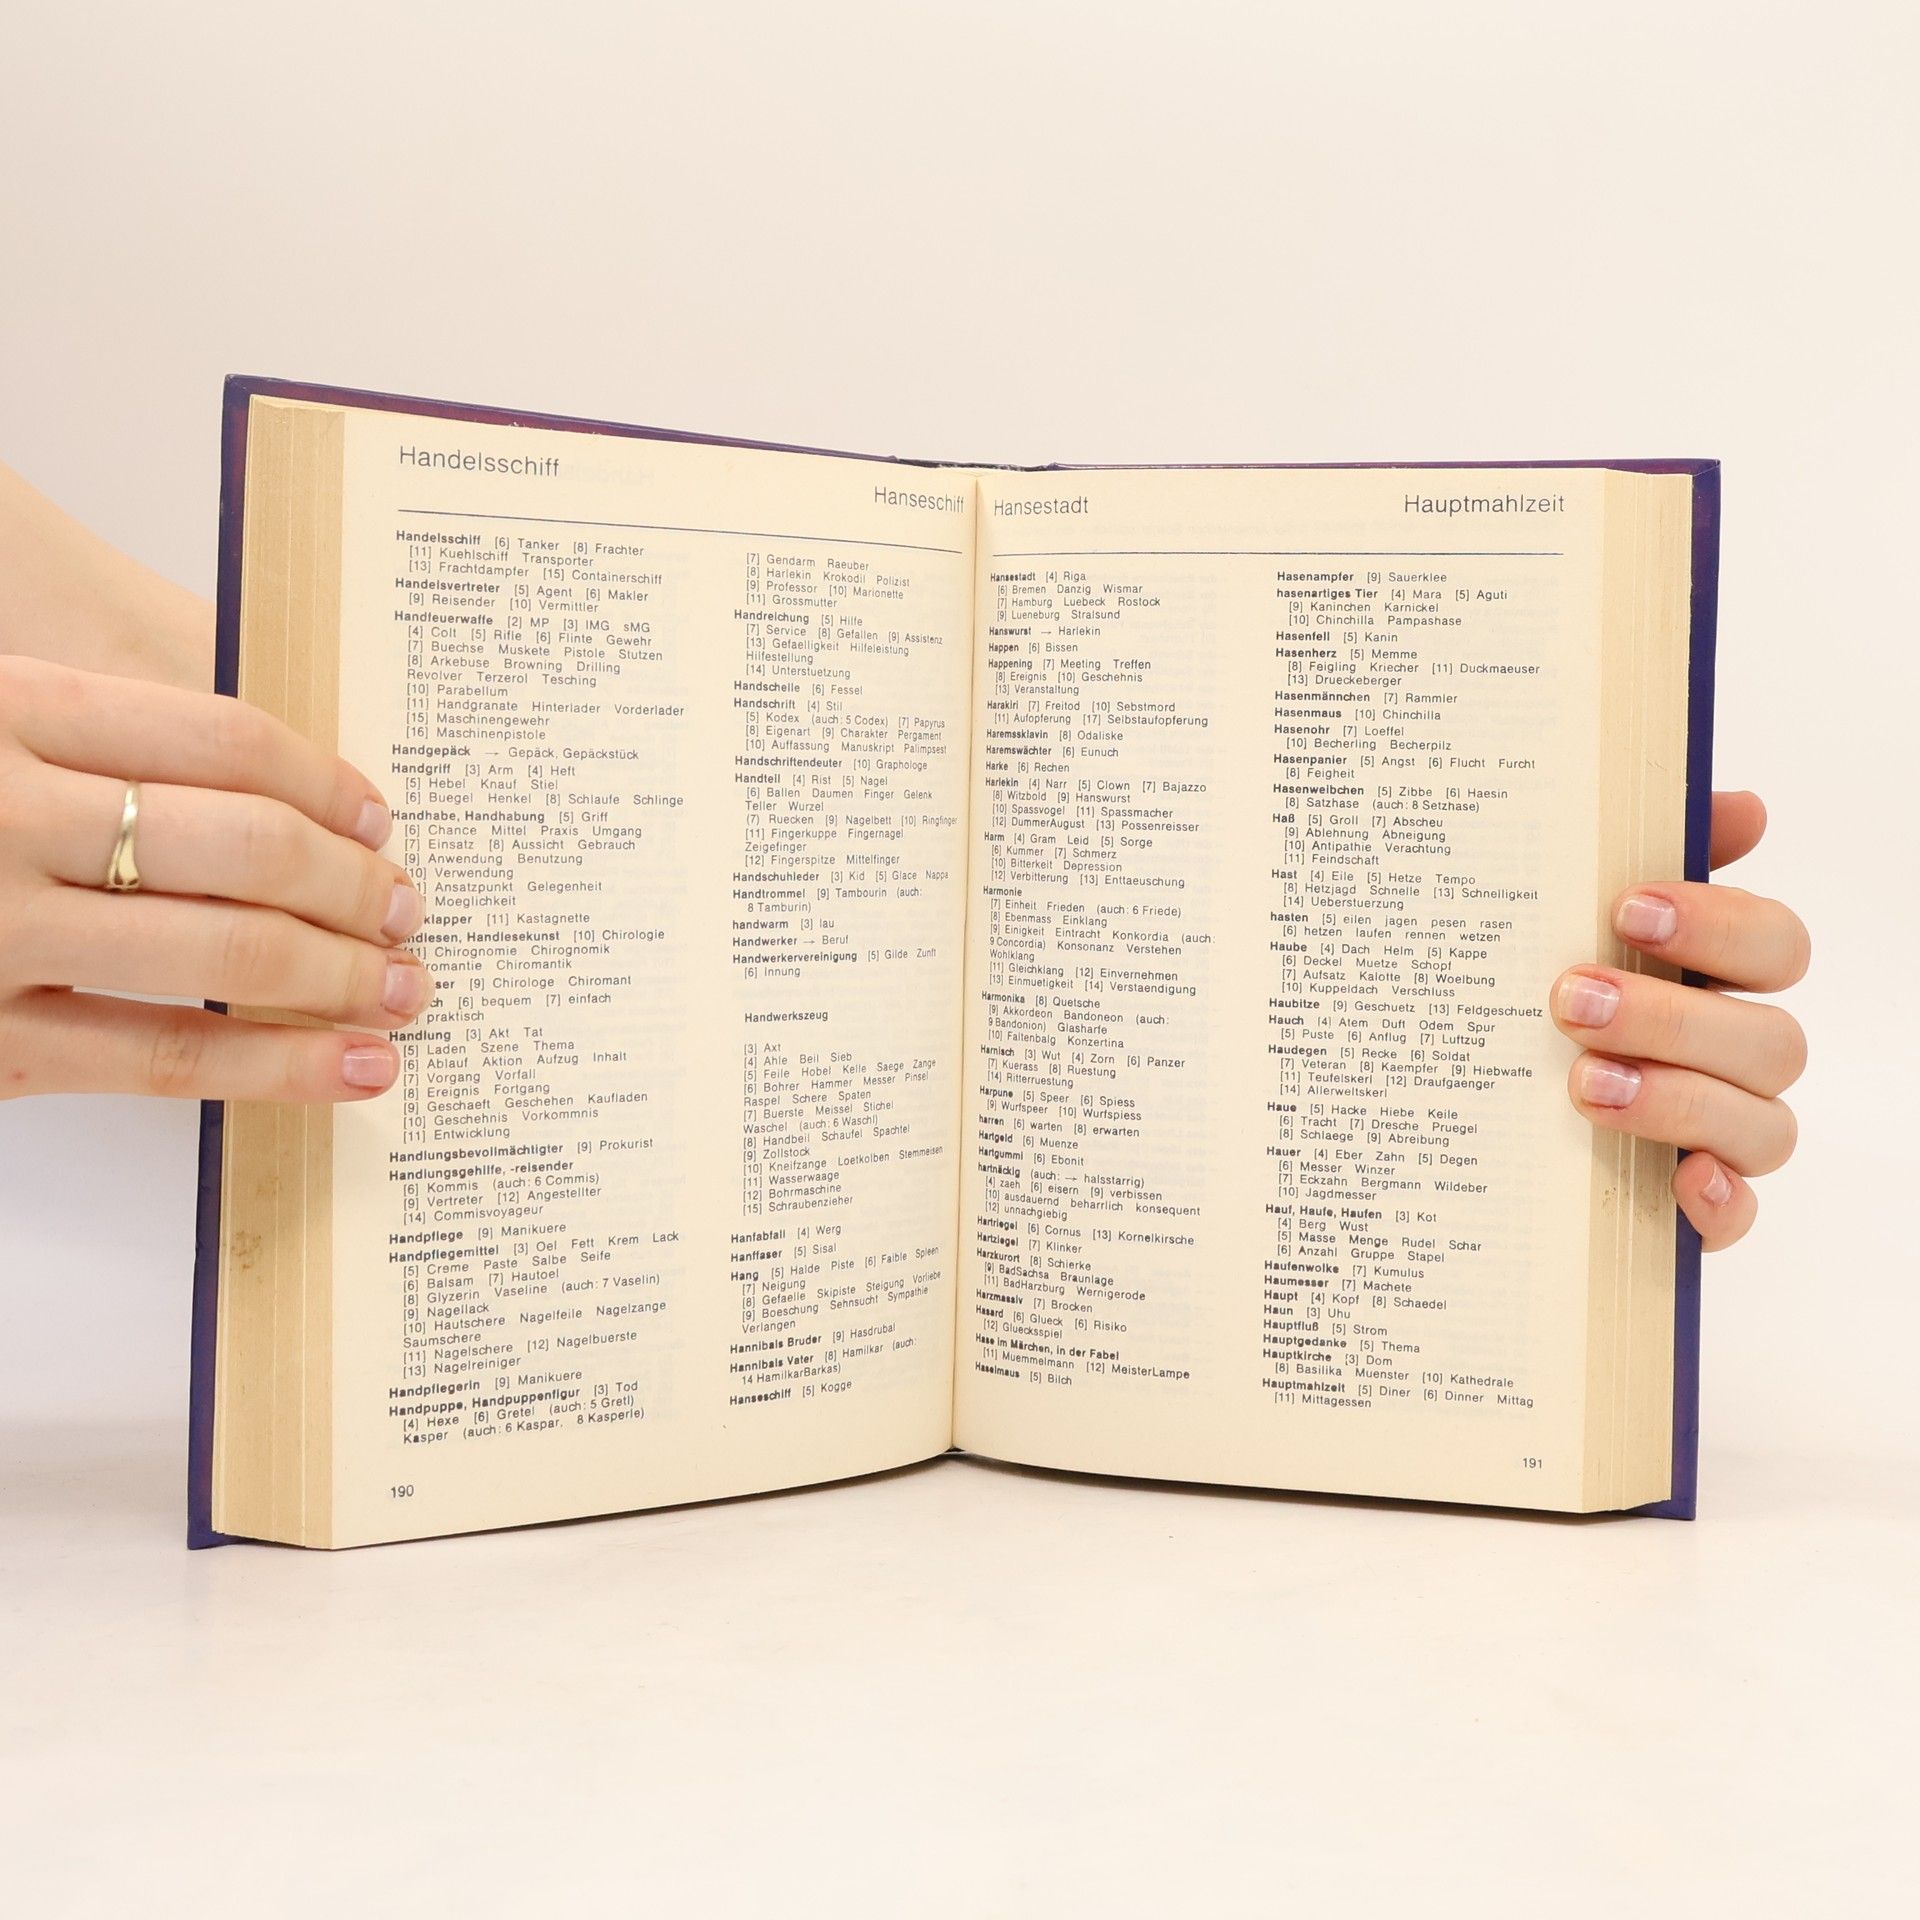 Handelsschiff
Hanseschiff
Handelsschiff [6] Tanker [8] Frachter
[11] Kuehlschiff Transporter
[13] Frachtdampfer [15] Containerschiff
Handelsvertreter [5] Agent [6] Makler
[9] Reisender [10] Vermittler
Handfeuerwaffe [2] MP [3] IMG sMG
[4] Colt [5] Rifle [6] Flinte Gewehr
[7] Buechse Muskete Pistole Stutzen
[8] Arkebuse Browning Drilling
Revolver Terzerol Tesching
[10] Parabellum
[11] Handgranate Hinterlader Vorderlader
[15] Maschinengewehr
[16] Maschinenpistole
Handgepäck → Gepäck, Gepäckstück
Handgriff [3] Arm [4] Heft
[5] Hebel Knauf Stiel
[6] Buegel Henkel [8] Schlaufe Schlinge
Handhabe, Handhabung [5] Griff
[6] Chance Mittel Praxis Umgang
[7] Einsatz [8] Aussicht Gebrauch
[9] Anwendung Benutzung
10] Verwendung
1] Ansatzpunkt Gelegenheit
] Moeglichkeit
klapper [11] Kastagnette
ndlesen, Handlesekunst [10] Chirologie
11] Chirognomie Chirognomik
iromantie Chiromantik
ser [9] Chirologe Chiromant
ch [6] bequem [7] einfach
] praktisch
Handlung [3] Akt Tat
[5] Laden Szene Thema
[6] Ablauf Aktion Aufzug Inhalt
[7] Vorgang Vorfall
[8] Ereignis Fortgang
[9] Geschaeft Geschehen Kaufladen
[10] Geschehnis Vorkommnis
[11] Entwicklung
Handlungsbevollmächtigter [9] Prokurist
Handlungsgehilfe, -reisender
[6] Kommis (auch: 6 Commis)
[9] Vertreter [12] Angestellter
[14] Commisvoyageur
Handpflege [9] Manikuere
Handpflegemittel [3] Oel Fett Krem Lack
[5] Creme Paste Salbe Seife
[6] Balsam [7] Hautoel
[8] Glyzerin Vaseline (auch: 7 Vaselin)
[9] Nagellack
[10] Hautschere Nagelfeile Nagelzange
Saumschere
[11] Nagelschere [12] Nagelbuerste
[13] Nagelreiniger
Handpflegerin [9] Manikuere
Handpuppe, Handpuppenfigur [3] Tod
[4] Hexe [6] Gretel (auch: 5 Gretl)
Kasper (auch: 6 Kaspar, 8 Kasperle)
[7] Gendarm Raeuber
[8] Harlekin Krokodil Polizist
[9] Professor [10] Marionette
[11] Grossmutter
Handreichung [5] Hilfe
[7] Service [8] Gefallen [9] Assistenz
[13] Gefaelligkeit Hilfeleistung
Hilfestellung
[14] Unterstuetzung
Handschelle [6] Fessel
Handschrift [4] Stil
[5] Kodex (auch: 5 Codex) [7] Papyrus
[8] Eigenart [9] Charakter Pergament
[10] Auffassung Manuskript Palimpsest
Handschriftendeuter [10] Graphologe
Handteil [4] Rist [5] Nagel
[6] Ballen Daumen Finger Gelenk
Teller Wurzel
(7) Ruecken [9] Nagelbett [10] Ringfinger
[11] Fingerkuppe Fingernagel
Zeigefinger
[12] Fingerspitze Mittelfinger
Handschuhleder [3] Kid [5] Glace Nappa
Handtrommel [9] Tambourin (auch:
8 Tamburin)
handwarm [3] lau
Handwerker → Beruf
Handwerkervereinigung [5] Gilde Zunft
[6] Innung
Handwerkszeug
[3] Axt
[4] Ahle Beil Sieb
[5] Feile Hobel Kelle Saege Zange
[6] Bohrer Hammer Messer Pinsel
Raspel Schere Spaten
[7] Buerste Meissel Stichel
Waschel (auch: 6 Waschl)
[8] Handbeil Schaufel Spachtel
[9] Zollstock
[10] Kneifzange Loetkolben Stemmeisen
[11] Wasserwaage
[12] Bohrmaschine
[15] Schraubenzieher
Hanfabfall [4] Werg
Hanffaser [5] Sisal
Hang [5] Halde Piste [6] Faible Spleen
[7] Neigung
[8] Gefaelle Skipiste Steigung Vorliebe
[9] Boeschung Sehnsucht Sympathie
Verlangen
Hannibals Bruder [9] Hasdrubal
Hannibals Vater [8] Hamilkar (auch:
14 HamilkarBarkas)
Hanseschiff [5] Kogge
190
Hansestadt
Hauptmahlzeit
Hansestadt [4] Riga
[6] Bremen Danzig Wismar
[7] Hamburg Luebeck Rostock
[9] Lueneburg Stralsund
Hanswurst → Harlekin
Happen [6] Bissen
Happening [7] Meeting Treffen
[8] Ereignis [10] Geschehnis
[13] Veranstaltung
Harakiri [7] Freitod [10] Sebstmord
[11] Aufopferung [17] Selbstaufopferung
Haremssklavin [8] Odaliske
Haremswächter [6] Eunuch
Harke [6] Rechen
Harlekin [4] Narr [5] Clown [7] Bajazzo
[8] Witzbold [9] Hanswurst
[10] Spassvogel [11] Spassmacher
[12] DummerAugust [13] Possenreisser
Harm [4] Gram Leid [5] Sorge
[6] Kummer [7] Schmerz
[10] Bitterkeit Depression
[12] Verbitterung [13] Enttaeuschung
Harmonie
[7] Einheit Frieden (auch: 6 Friede)
[8] Ebenmass Einklang
[9] Einigkeit Eintracht Konkordia (auch:
9 Concordia) Konsonanz Verstehen
Wohlklang
[11] Gleichklang [12] Einvernehmen
[13] Einmuetigkeit [14] Verstaendigung
Harmonika [8] Quetsche
[9] Akkordeon Bandoneon (auch:
9 Bandonion) Glasharfe
[10] Faltenbalg Konzertina
Harnisch [3] Wut [4] Zorn [6] Panzer
[7] Kuerass [8] Ruestung
[14] Ritterruestung
Harpune [5] Speer [6] Spiess
[9] Wurfspeer [10] Wurfspiess
harren [6] warten [8] erwarten
Hartgeld [6] Muenze
Hartgummi [6] Ebonit
hartnäckig (auch: → halsstarrig)
[4] zaeh [6] eisern [9] verbissen
[10] ausdauernd beharrlich konsequent
[12] unnachgiebig
Hartriegel [6] Cornus [13] Kornelkirsche
Hartziegel [7] Klinker
Harzkurort [8] Schierke
[9] BadSachsa Braunlage
[11] BadHarzburg Wernigerode
Harzmassiv [7] Brocken
Hasard [6] Glueck [6] Risiko
[12] Gluecksspiel
Hase im Märchen, in der Fabel
[11] Muemmelmann [12] MeisterLampe
Haselmaus [5] Bilch
Hasenampfer [9] Sauerklee
hasenartiges Tier [4] Mara [5] Aguti
[9] Kaninchen Karnickel
[10] Chinchilla Pampashase
Hasenfell [5] Kanin
Hasenherz [5] Memme
[8] Feigling Kriecher [11] Duckmaeuser
[13] Drueckeberger
Hasenmännchen [7] Rammler
Hasenmaus [10] Chinchilla
Hasenohr [7] Loeffel
[10] Becherling Becherpilz
Hasenpanier [5] Angst [6] Flucht Furcht
[8] Feigheit
Hasenweibchen [5] Zibbe [6] Haesin
[8] Satzhase (auch: 8 Setzhase)
Haß [5] Groll [7] Abscheu
[9] Ablehnung Abneigung
[10] Antipathie Verachtung
[11] Feindschaft
Hast [4] Eile [5] Hetze Tempo
[8] Hetzjagd Schnelle [13] Schnelligkeit
[14] Ueberstuerzung
hasten [5] eilen jagen pesen rasen
[6] hetzen laufen rennen wetzen
Haube [4] Dach Helm [5] Kappe
[6] Deckel Muetze Schopf
[7] Aufsatz Kalotte [8] Woelbung
[10] Kuppeldach Verschluss
Haubitze [9] Geschuetz [13] Feldgeschuetz
Hauch [4] Atem Duft Odem Spur
[5] Puste [6] Anflug [7] Luftzug
Haudegen [5] Recke [6] Soldat
[7] Veteran [8] Kaempfer [9] Hiebwaffe
[11] Teufelskerl [12] Draufgaenger
[14] Allerweltskerl
Haue [5] Hacke Hiebe Keile
[6] Tracht [7] Dresche Pruegel
[8] Schlaege [9] Abreibung
Hauer [4] Eber Zahn [5] Degen
[6] Messer Winzer
[7] Eckzahn Bergmann Wildeber
[10] Jagdmesser
Hauf, Haufe, Haufen [3] Kot
[4] Berg Wust
[5] Masse Menge Rudel Schar
[6] Anzahl Gruppe Stapel
Haufenwolke [7] Kumulus
Haumesser [7] Machete
Haupt [4] Kopf [8] Schaedel
Haun [3] Uhu
Hauptfluß [5] Strom
Hauptgedanke [5] Thema
Hauptkirche [3] Dom
[8] Basilika Muenster [10] Kathedrale
Hauptmahlzeit [5] Diner [6] Dinner Mittag
[11] Mittagessen
191